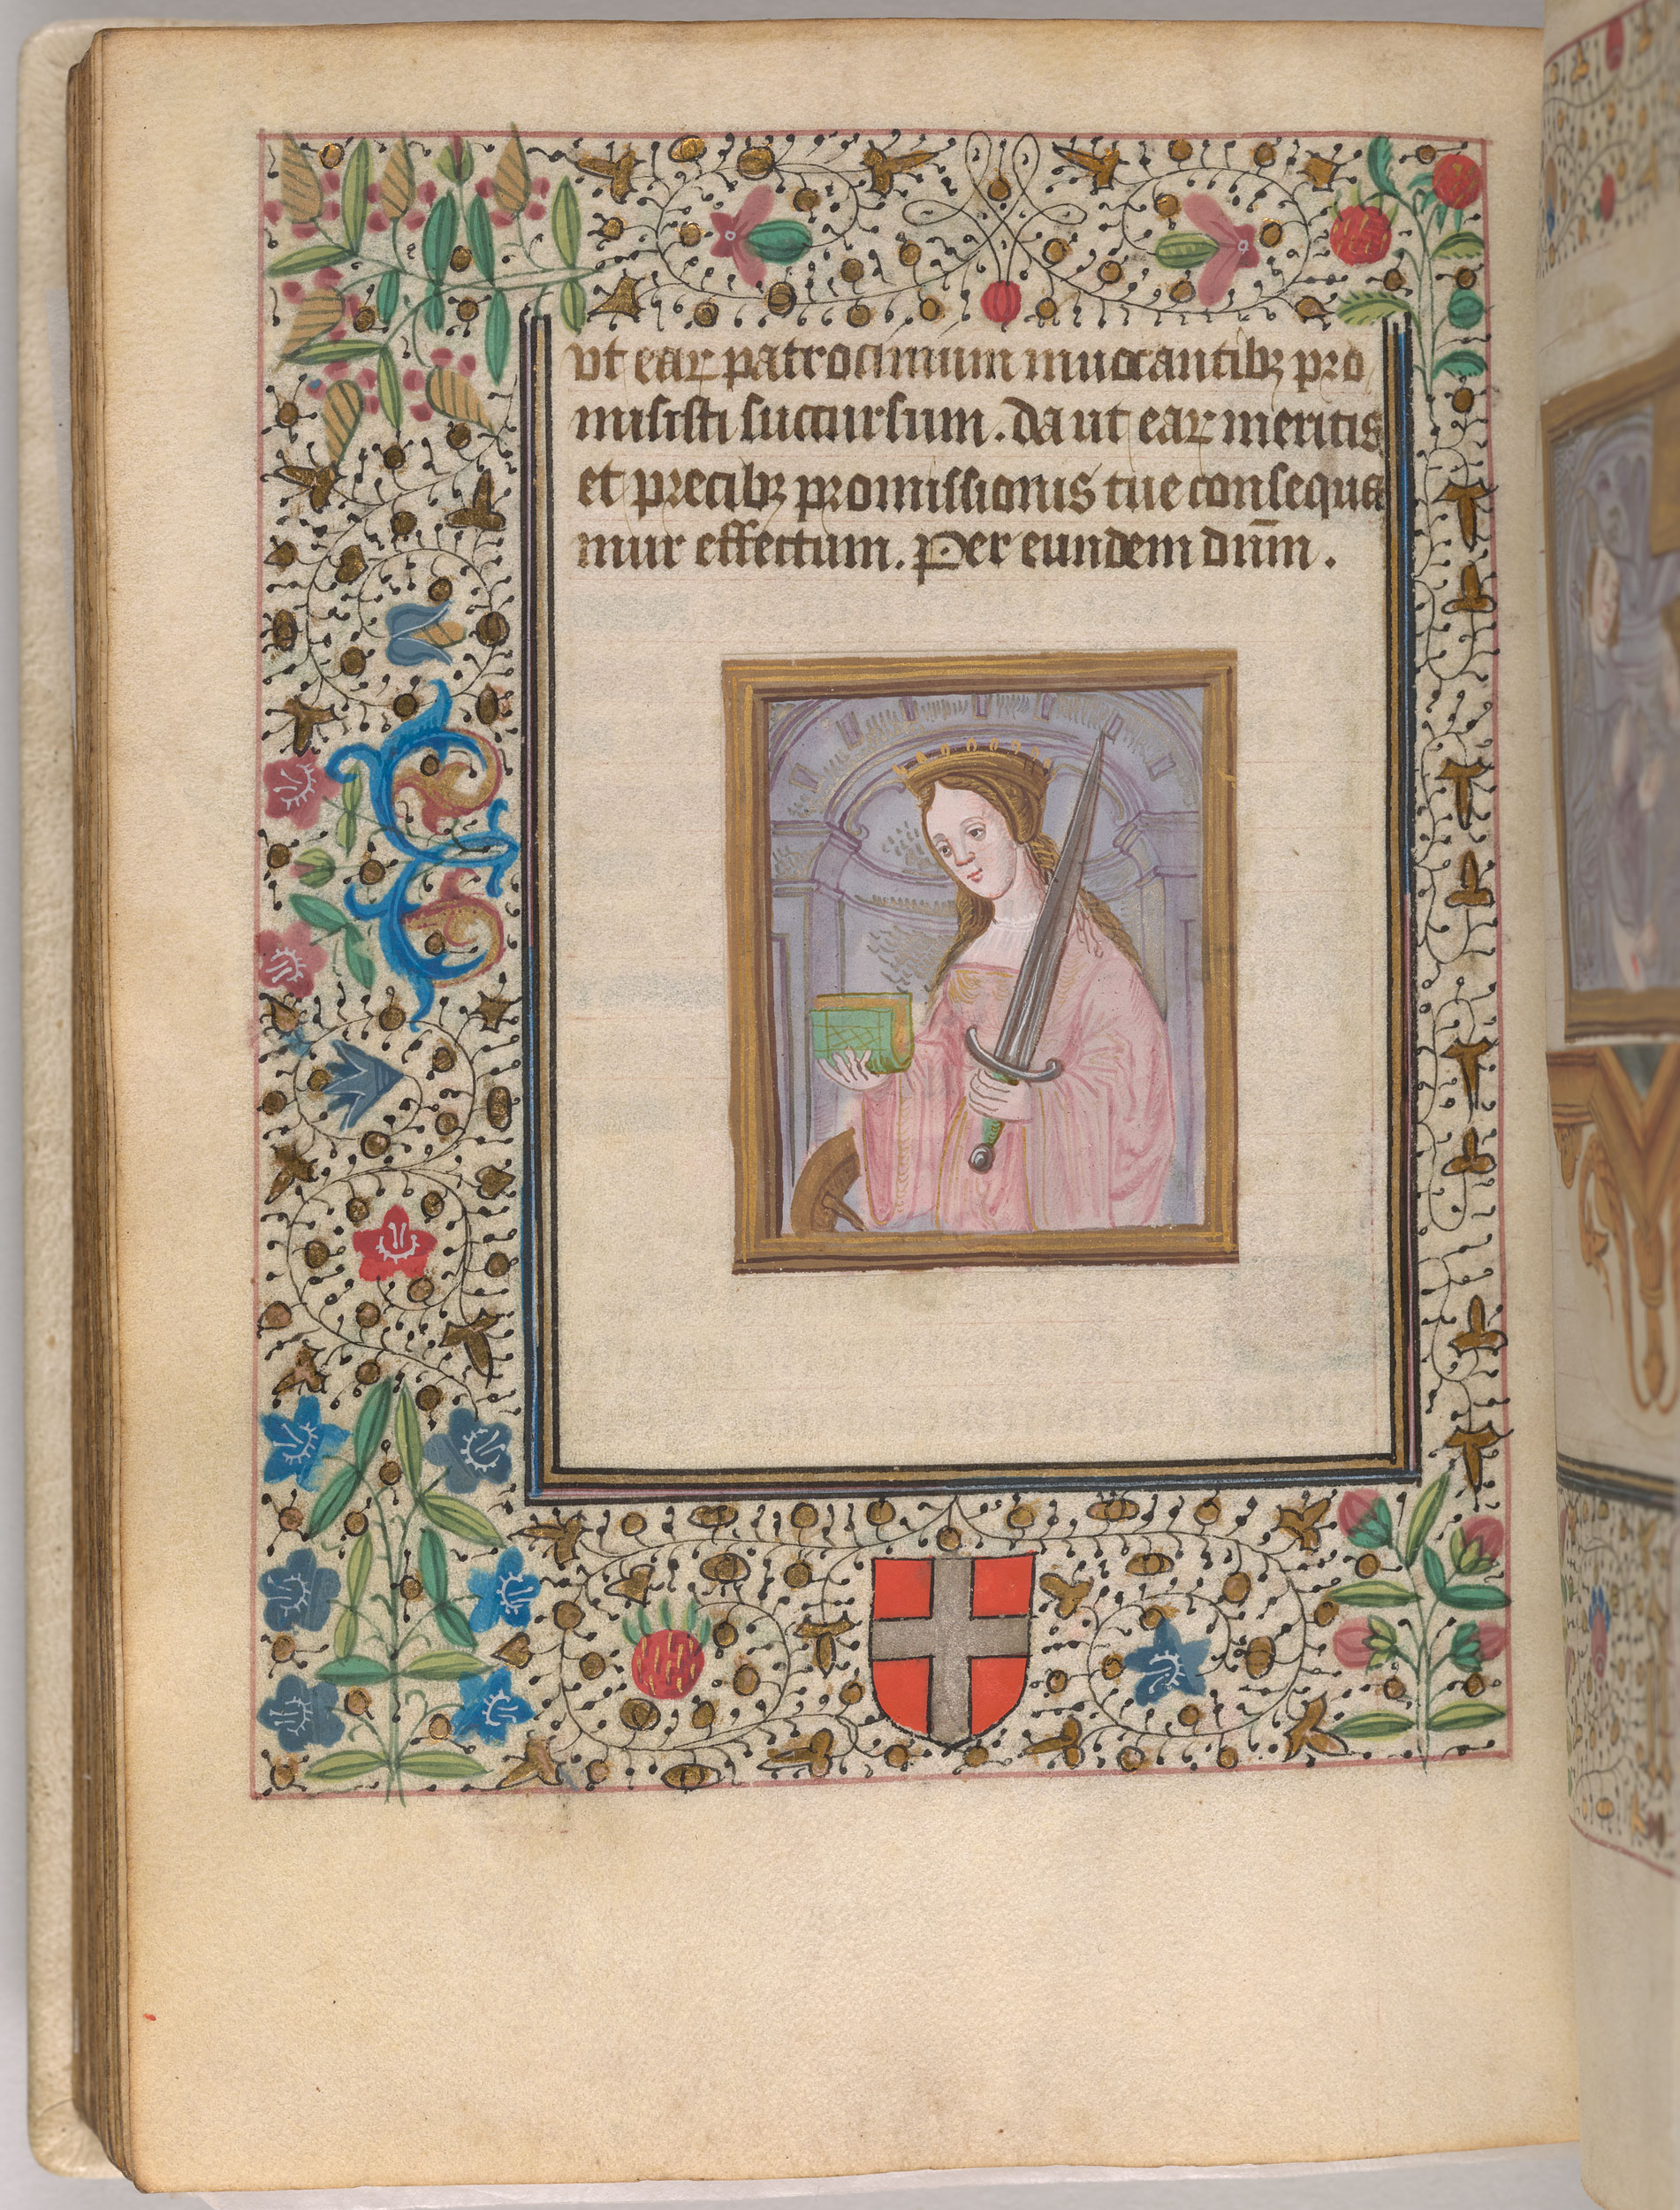 ut eaꝝ patrocinium inuocantibꝫ pro
misisti succursum. da ut eaꝝ meritis
et precibꝫ promissionis tue consequa
mur effectum. Per eundem dn̄m.